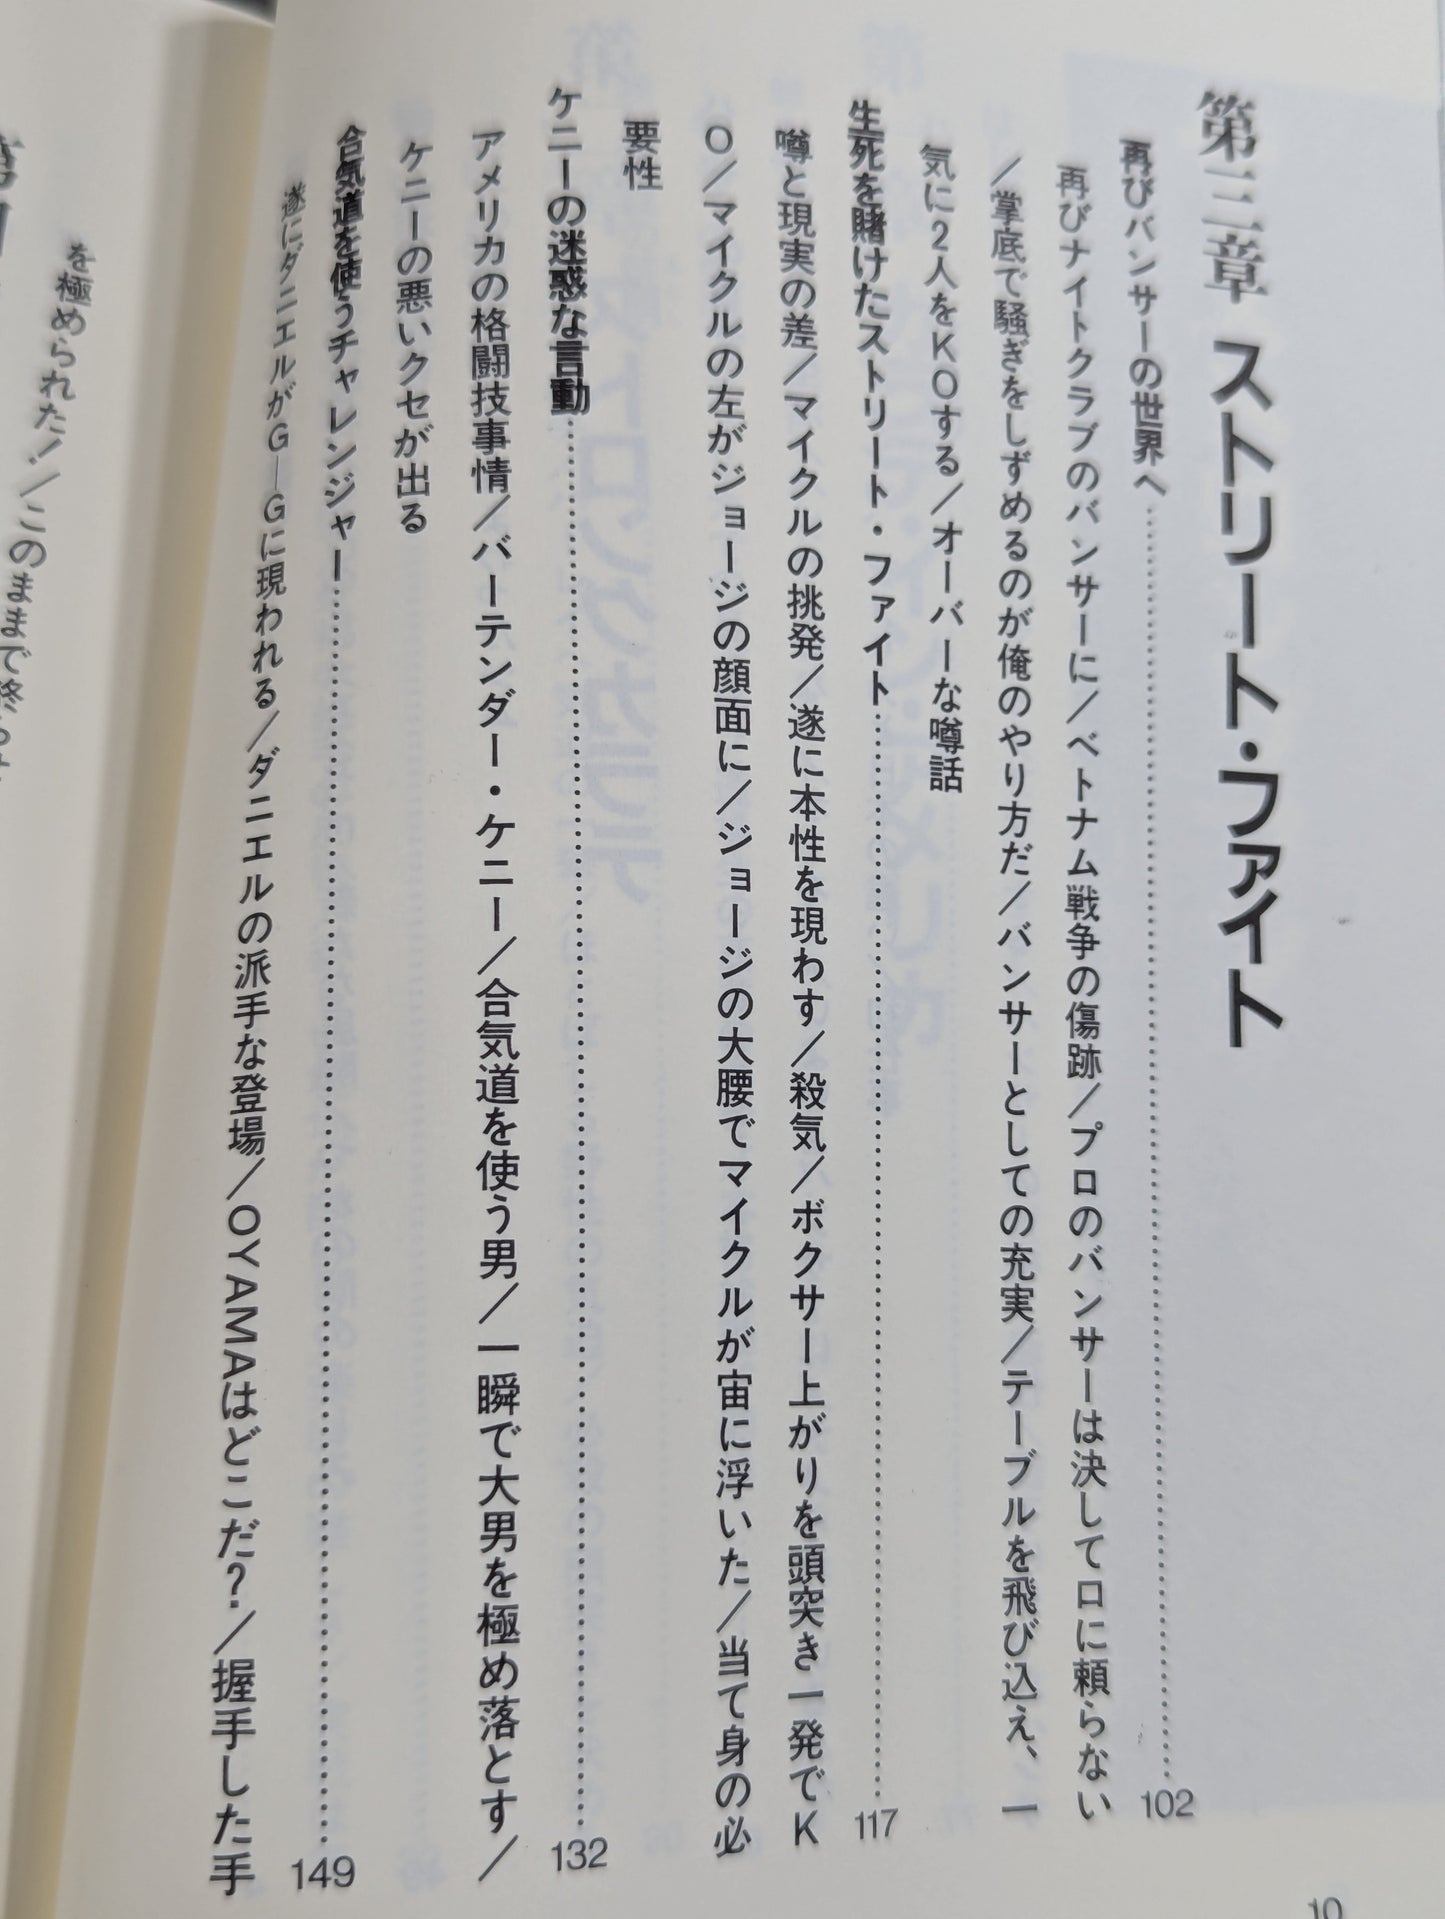 第三章 ストリート・ファイト
再びバンサーの世界へ……………………102
再びナイトクラブのバンサーに／ベトナム戦争の傷跡／プロのバンサーは決して口に頼らない
／掌底で騒ぎをしずめるのが俺のやり方だ／バンサーとしての充実／テーブルを飛び込え、一
気に２人をＫＯする／オーバーな噂話
生死を賭けたストリート・ファイト……………………117
噂と現実の差／マイクルの挑発／遂に本性を現わす／殺気／ボクサー上がりを頭突き一発でＫ
Ｏ／マイクルの左がジョージの顔面に／ジョージの大腰でマイクルが宙に浮いた／当て身の必
要性
ケニーの迷惑な言動……………………132
アメリカの格闘技事情／バーテンダー・ケニー／合気道を使う男／一瞬で大男を極め落とす／
ケニーの悪いクセが出る
合気道を使うチャレンジャー……………………149
遂にダニエルがＧ―Ｇに現われる／ダニエルの派手な登場／ＯＹＡＭＡはどこだ？／握手した手
10
を極められた！／このままで終